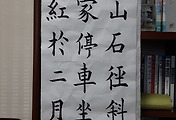 山石徑斜
家停車坐
紅於二月